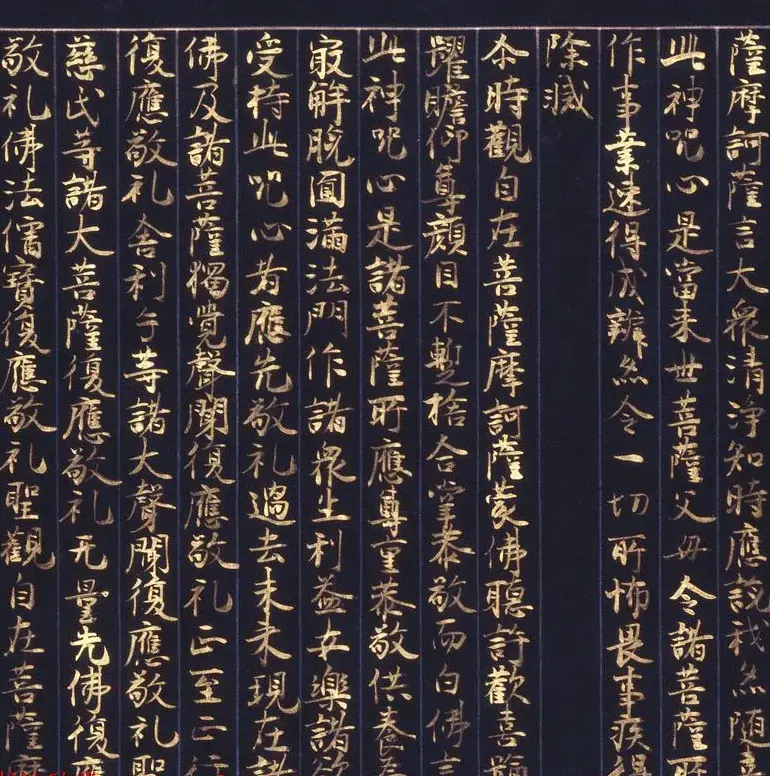 薩摩訶薩言大衆清淨知時應說我然随
此神呪心是當来世菩薩父毋令諸菩薩所
作事業速得成辦然令一切所怖畏事疾得
除滅
尒時觀自在菩薩摩訶薩蒙佛聽許歡喜踊
躍瞻仰尊顔目不暫捨合掌恭敬而白佛言
此神呪心是諸菩薩所應尊重恭敬供養
㝡解脫圎滿法門作諸衆生利益安樂諸
受持此呪心者應先敬礼過去未来現在諸
佛及諸菩薩獨覺聲聞復應敬礼正至正行
復應敬礼舍利子等諸大聲聞復應敬礼聖
慈氏等諸大菩薩復應敬礼无量先佛復應
敬礼佛法僧寳復應敬礼聖觀自在菩薩摩